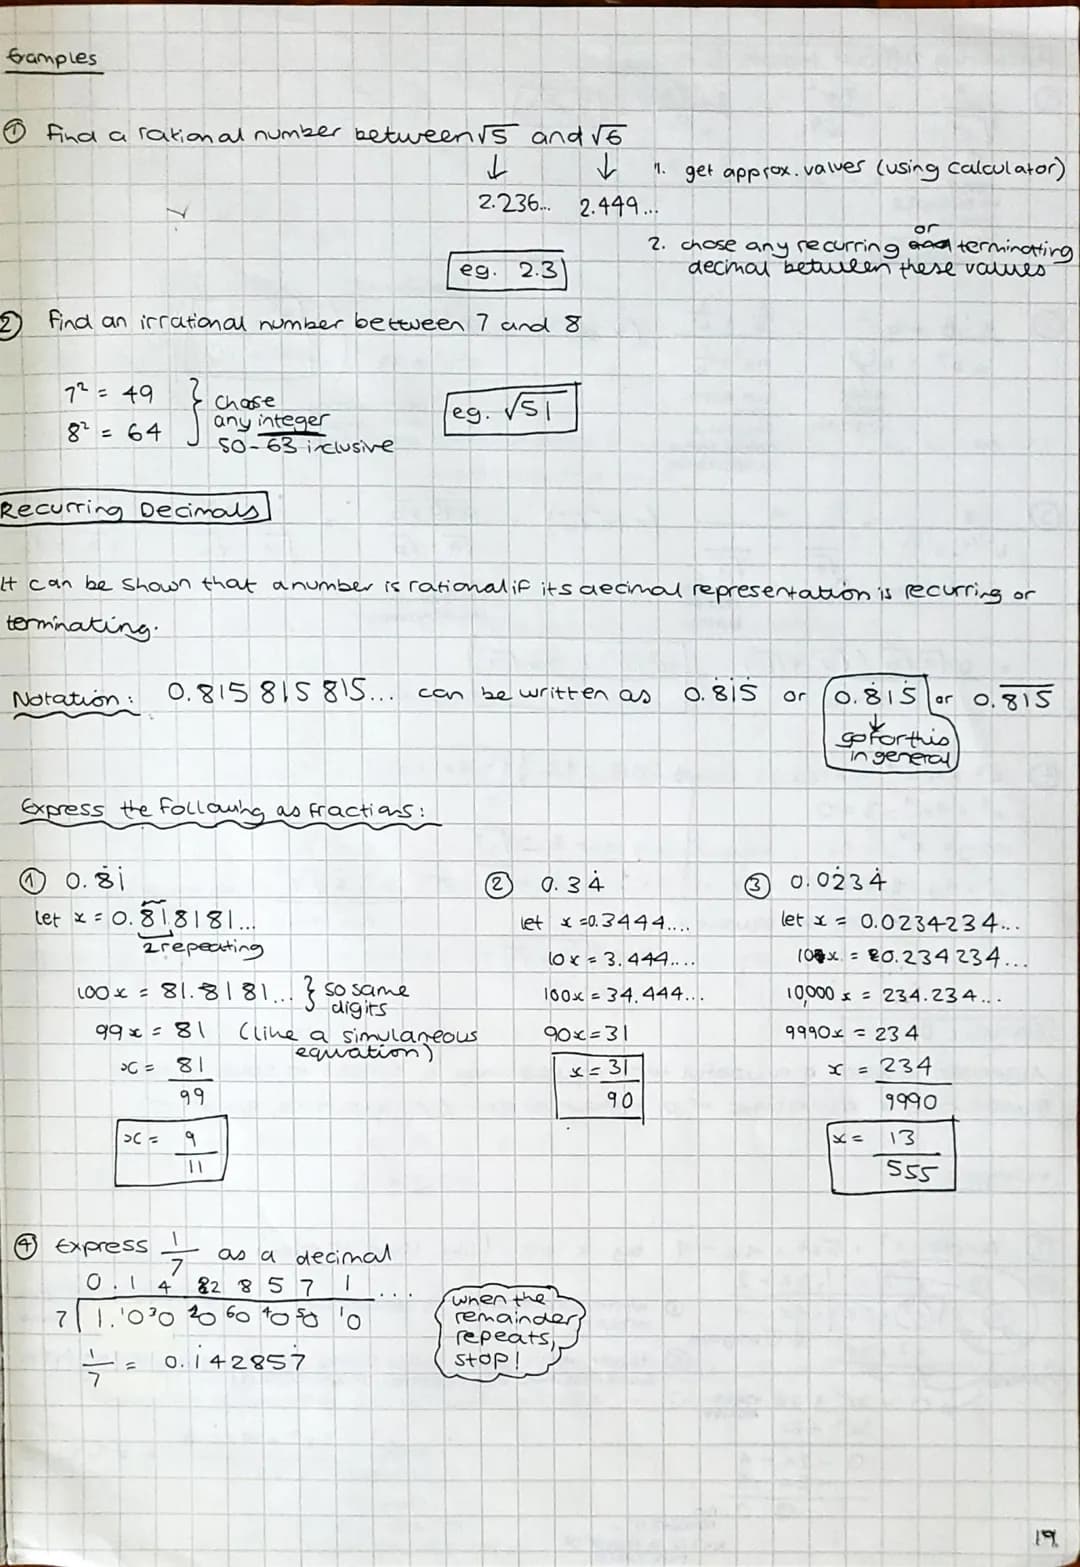 Examples
① Find a rational number between √5 and √6
↓ ↓ 1. get approx. values (using calculator)
2.236... 2.449...
or
2. chose any recurring terminatting
decimal between these values
eg. 2.3
② Find an irrational number between 7 and 8
7² = 49
8² = 64
} chose
any integer
50-63 inclusive
eg. √51
Recurring Decimals
It can be shown that a number is rational if its decimal representation is recurring or
terminating.
Notation: 0.815 815 815... can be written as 0.8̇1̇5̇ or 0.8̇15̇ or 0.8̅1̅5̅
↓
go for this
in general
Express the following as fractions:
① 0.8̇1̇
let x = 0.818181...
2 repeating
100x = 81.8181... } so same
digits
99x = 81 (like a simulaneous
equation)
x = 81/99
x = 9/11
② 0.34̇
let x = 0.3444....
10x = 3.444....
100x = 34.444...
90x = 31
x = 31/90
③ 0.02̇34̇
let x = 0.0234234...
10x = 0.234234...
10,000x = 234.234...
9990x = 234
x = 234/9990
x = 13/555
④ Express 1/7 as a decimal
0.1 4 2 8 5 7 1 ...
7 1.¹0³0 ²0 ⁶0 ⁴0 ⁵0 ¹0
1/7 = 0.1̇42857̇
when the
remainder
repeats,
stop!
19